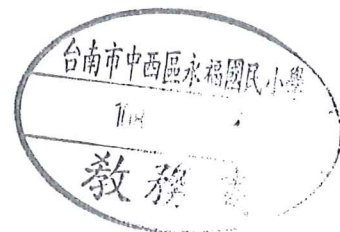 台南市中西區永福國民小學
108
教務